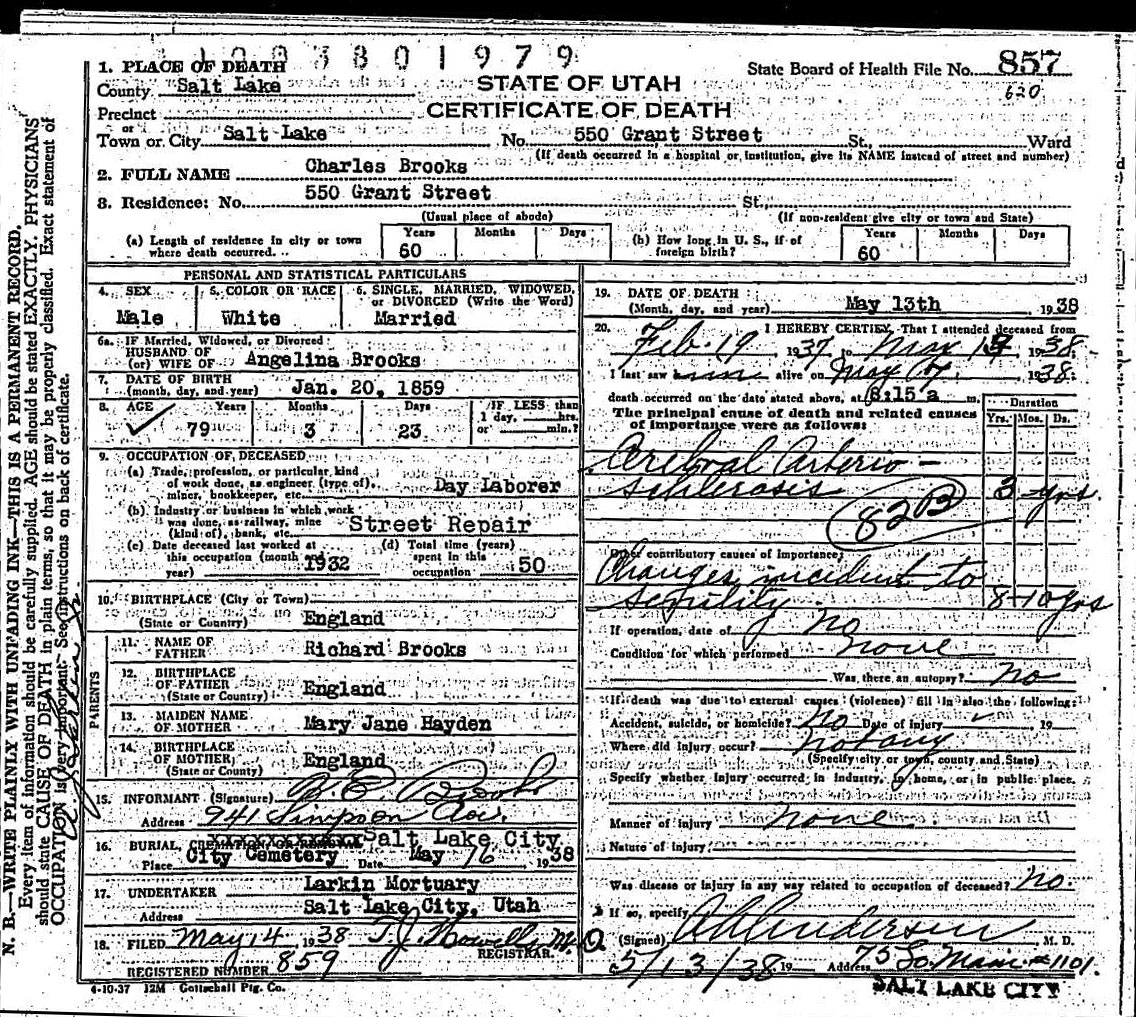 1 0 9 3 8 0 1 9 7 9
State Board of Health File No. 857
620
STATE OF UTAH
CERTIFICATE OF DEATH
1. PLACE OF DEATH
County Salt Lake
Precinct
or
Town or City Salt Lake No. 550 Grant Street St., Ward
(If death occurred in a hospital or institution, give its NAME instead of street and number)
2. FULL NAME Charles Brooks
3. Residence: No. 550 Grant Street St.,
(Usual place of abode) (If non-resident give city or town and State)
(a) Length of residence in city or town where death occurred. Years 60 Months Days
(b) How long in U. S., if of foreign birth? Years 60 Months Days
PERSONAL AND STATISTICAL PARTICULARS
4. SEX Male
5. COLOR OR RACE White
6. SINGLE, MARRIED, WIDOWED, or DIVORCED (Write the Word) Married
6a. IF Married, Widowed, or Divorced
HUSBAND OF
(or) WIFE OF Angelina Brooks
7. DATE OF BIRTH
(month, day, and year) Jan. 20, 1859
8. AGE Years 79 Months 3 Days 23
IF LESS than
1 day, hrs.
or min.?
9. OCCUPATION OF DECEASED
(a) Trade, profession, or particular kind
of work done, as engineer (type of),
miner, bookkeeper, etc. Day Laborer
(b) Industry or business in which work
was done, as railway, mine
(kind of), bank, etc. Street Repair
(c) Date deceased last worked at
this occupation (month and
year) 1932
(d) Total time (years)
spent in this
occupation 50
10. BIRTHPLACE (City or Town)
(State or Country) England
PARENTS
11. NAME OF
FATHER Richard Brooks
12. BIRTHPLACE
OF FATHER
(State or Country) England
13. MAIDEN NAME
OF MOTHER Mary Jane Hayden
14. BIRTHPLACE
OF MOTHER
(State or County) England
15. INFORMANT (Signature) Brooks
Address 941 Simpson Ave.
16. BURIAL, CREMATION, OR REMOVAL Salt Lake City
Place City Cemetery Date May 16 1938
17. UNDERTAKER Larkin Mortuary
Address Salt Lake City, Utah
18. FILED May 14, 1938 T. J. Howells, M. D.
REGISTRAR.
REGISTERED NUMBER 859
4-10-37 12M Gottschall Ptg. Co.
19. DATE OF DEATH
(Month, day, and year) May 13th 1938
20. I HEREBY CERTIFY, That I attended deceased from
Feb. 19 1937 to May 13 1938
I last saw him alive on May 1938
death occurred on the date stated above, at 8:15 a m.
Duration
Yrs. Mos. Ds.
The principal cause of death and related causes
of importance were as follows:
Cerebral Arterio-
sclerosis 3 yrs
82B
Other contributory causes of importance:
Changes incident to
senility. 8-10 yrs
If operation, date of no
Condition for which performed none
Was there an autopsy? no
If death was due to external causes (violence) fill in also the following:
Accident, suicide, or homicide? No Date of injury 19
Where did injury occur? not any
(Specify city or town, county and State)
Specify whether injury occurred in industry, in home, or in public place.
Manner of injury none
Nature of injury
Was disease or injury in any way related to occupation of deceased? no.
If so, specify
(Signed) Andersen M. D.
5/13/38 19 Address 75 So. Main #1101.
SALT LAKE CITY
N. B.—WRITE PLAINLY WITH UNFADING INK—THIS IS A PERMANENT RECORD.
Every item of information should be carefully supplied. AGE should be stated EXACTLY. PHYSICIANS
should state CAUSE OF DEATH in plain terms, so that it may be properly classified. Exact statement of
OCCUPATION is very important. See instructions on back of certificate.